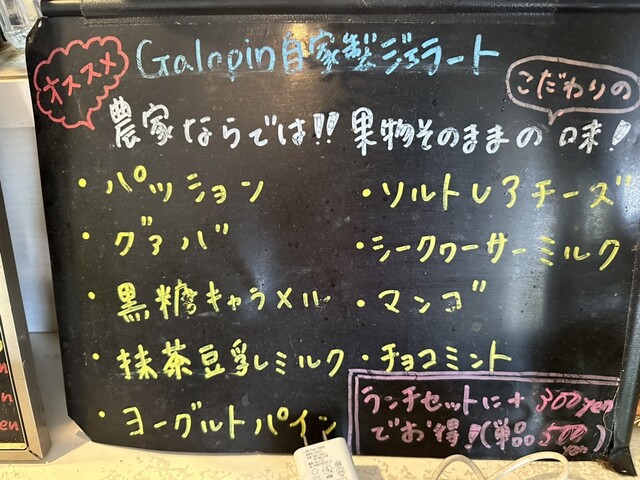 オススメ
Galopin自家製ジェラート
こだわりの
農家ならでは!! 果物そのままの味!
・パッション
・グァバ
・黒糖キャラメル
・抹茶豆乳ミルク
・ヨーグルトパイン
・ソルトレアチーズ
・シークヮーサーミルク
・マンゴ
・チョコミント
ランチセットに+300yen
でお得!(単品500yen)